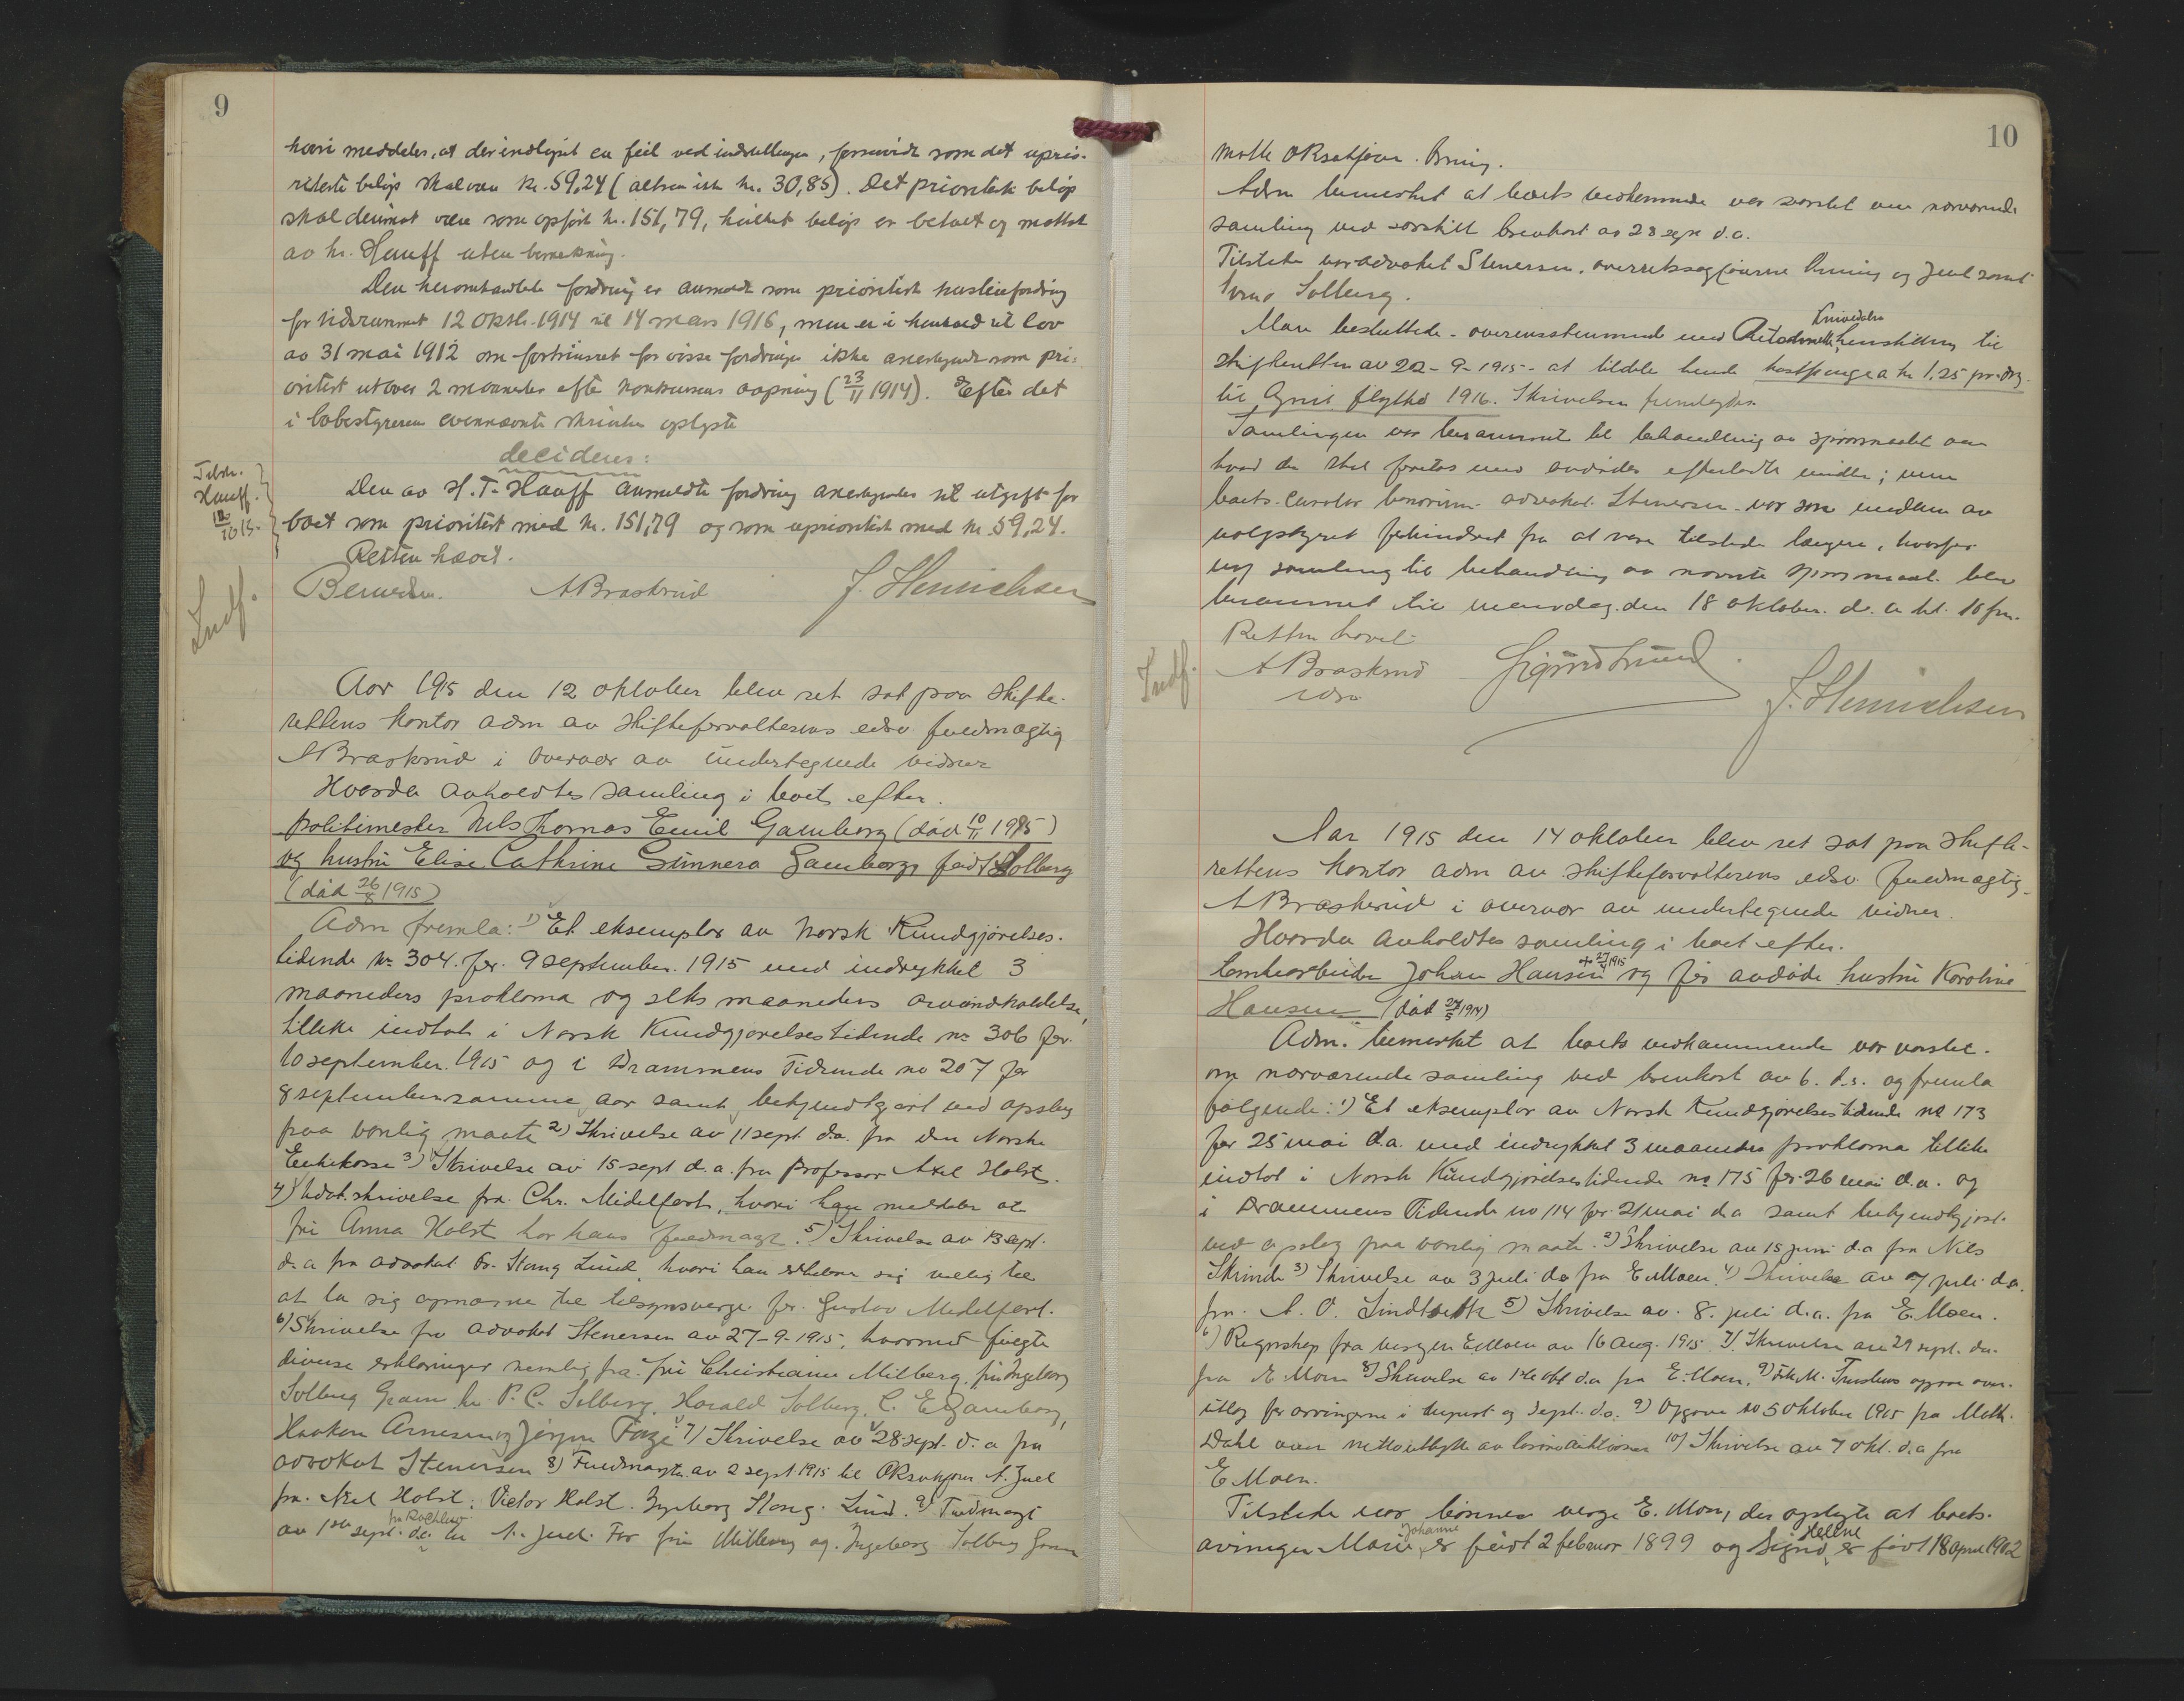 9
hvori meddeles, at der indløpet en feil ved indstillingen, forsaavidt som det uprio-
riterte beløp skal være kr. 59,24 (altsaa ikke kr. 30,85). Det prioriterte beløp
skal derimot være som opført kr. 151,79, hvilket beløp er betalt og mottat
av hr. Hauff uten bemerkning.
Den heromhandlede fordring er anmeldt som prioritert husleiefordring
for tidsrummet 12 oktbr. 1914 til 14 mars 1916, men er i henhold til lov
av 31 mai 1912 om fortrinsret for visse fordringer ikke anerkjendt som pri-
oritert utover 2 maaneder efter konkursens aapning (23/11 1914). Efter det
i bobestyrerens ovennævnte skrivelse oplyste
decideres:
Tilskr.
Hauff.
12/10 15.
Den av H. T. Hauff anmeldte fordring anerkjendes til utgift for
boet som prioritert med kr. 151,79 og som uprioritert med kr. 59,24.
Retten hævet.
A Braskerud J. Henrichsen
Indf.
Aar 1915 den 12 oktober blev ret sat paa skifte-
rettens kontor adm av skifteforvalterens edsv. fuldmægtig
A Braskerud i overvær av undertegnede vidner
Hvorda avholdtes samling i boet efter.
politimester Nils Thomas Emil Gamborg (død 10/11 1915)
og hustru Elise Cathrine Gunnera Gamborg født Solberg
(død 26/8 1915)
Adm fremla: 1) Et eksemplar av Norsk Kundgjørelses-
tidende nr 304. for. 9 september. 1915 med indrykket 3
maaneders proklama og seks maaneders arveindkaldelse,
tillike indtat i Norsk Kundgjørelsestidende nr 306 for.
10 september. 1915 og i Drammens Tidende no 207 for
8 september samme aar samt bekjendtgjort ved opslag
paa vanlig maate 2) Skrivelse av 11 sept. d.a. fra den Norske
Enkekasse 3) Skrivelse av 15 sept d.a. fra professor Axel Holst.
4) Udat. skrivelse fra Chr. Midelfart, hvori han meddeler at
fru Anna Holst har hans fuldmagt. 5) Skrivelse av 13 sept.
d.a fra advokat Fr. Stang Lund, hvori han erklærer sig villig til
at la sig opnævne til tilsynsverge for Gustav Midelfart.
6) Skrivelse fra advokat Stenersen av 27-9-1915, hvormed fulgte
diverse erklæringer nemlig fra fru Christiane Milberg. fru Ingeborg
Solberg Gram hr P. C. Solberg, Harald Solberg, C. E Gamborg,
Haakon Arnesen og Jørgen Faye 7) Skrivelse av 28 sept. d.a fra
advokat Stenersen 8) Fuldmagt av 2 sept 1915 til OKsakfører A. Juel
fra. Axel Holst. Victor Holst. Ingeborg Stang. Lund. 9) Fuldmagt
av 1ste sept. d.a til A. Juel. For fru Milberg og Ingeborg Solberg Gram
10
møtte OKsakfører. Bruing.
Adm bemerket at boets vedkommende var varslet om nærværende
samling ved særskilt brevkort av 28 sept d.a.
Tilstede var advokat Stenersen. overretssagførerne Bruing og Juel samt
Solberg.
Man besluttede - overensstemmende med henstilling til
skifteretten av 22-9-1915 - at tildele hende kostpenge a kr 1,25 pr. dag
til April flyttedag 1916. Skrivelsen fremlegdes.
Samlingen var berammet til behandling av spørsmaalet om
hvad der skal foretas med avdødes efterladte midler; men
boets curator bonorum advokat. Stenersen var som medlem av
valgstyret forhindret fra at være tilstede længere, hvorfor
ny samling til behandling av nævnte spørsmaal. blev
berammet til mandag. den 18 oktober. d. a kl. 10 fm.
Retten hævet
Indf.
A Braskerud Sigurd Lund J. Henrichsen
edsv
Aar 1915 den 14 oktober blev ret sat paa skifte-
rettens kontor adm av skifteforvalterens edsv. fuldmægtig
A Braskerud i overvær av undertegnede vidner.
Hvorda avholdtes samling i boet efter.
tomtearbeider Johan Hansen + 27/4 1915 og før avdøde hustru Karoline
Hansen (død 27/5 1914)
Adm. bemerket at boets vedkommende var varslet.
om nærværende samling ved brevkort av 6. d.s. og fremla
følgende: 1) Et eksemplar av Norsk Kundgjørelsestidende no 173
for 25 mai d.a. med indrykket 3 maaneders proklama tillike
indtat i Norsk Kundgjørelsestidende no 175 for 26 mai d.a. og
i Drammens Tidende no 114 for 21 mai d.a samt bekjendtgjort.
ved opslag paa vanlig maate. 2) Skrivelse av 15 juni d.a fra Nils
Skinde 3) Skrivelse av 3 juli d.a fra E Moen. 4) Skrivelse av 7 juli d.a.
fra. A. O. Lindbæk 5) Skrivelse av. 8. juli d.a. fra E. Moen.
6) Regnskap fra vergen E. Moen av 16 aug. 1915. 7) Skrivelse av 29 sept. d.a.
fra E Moen 8) Skrivelse av 1ste okt d.a fra E. Moen. 9) opgave over
utlæg for arvingerne i august og sept. d.a. 9) Opgave av 5 oktober 1915 fra Math.
Dahl over nettoutbytte av løsøreauktionen 10) Skrivelse av 7 okt. d.a fra
E Moen.
Tilstede var børnenes verge E. Moen, der oplyste at boets
arvinger Marie Johanne er født 2 februar 1899 og Signe Helene er født 18 april 1902